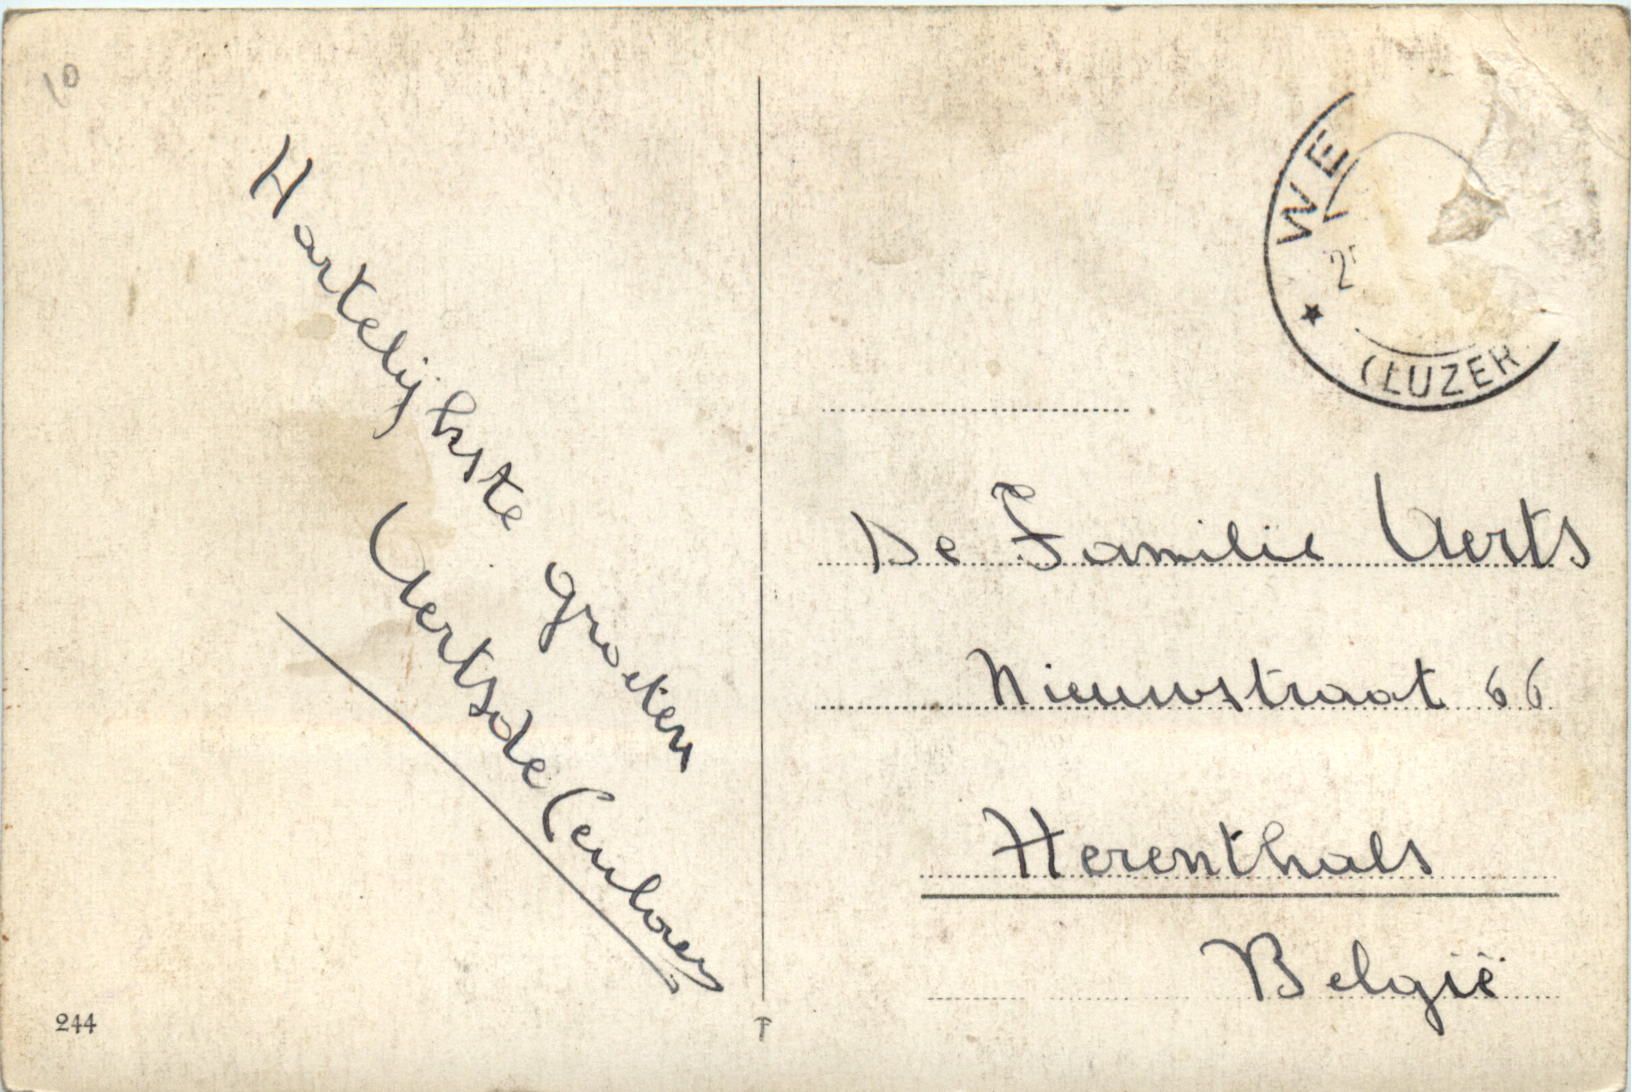 10
Hartelijkste groeten
Aerts de Ceuleer
244
WE
2
(LUZER
De Familie Aerts
Nieuwstraat 66
Herenthals
België